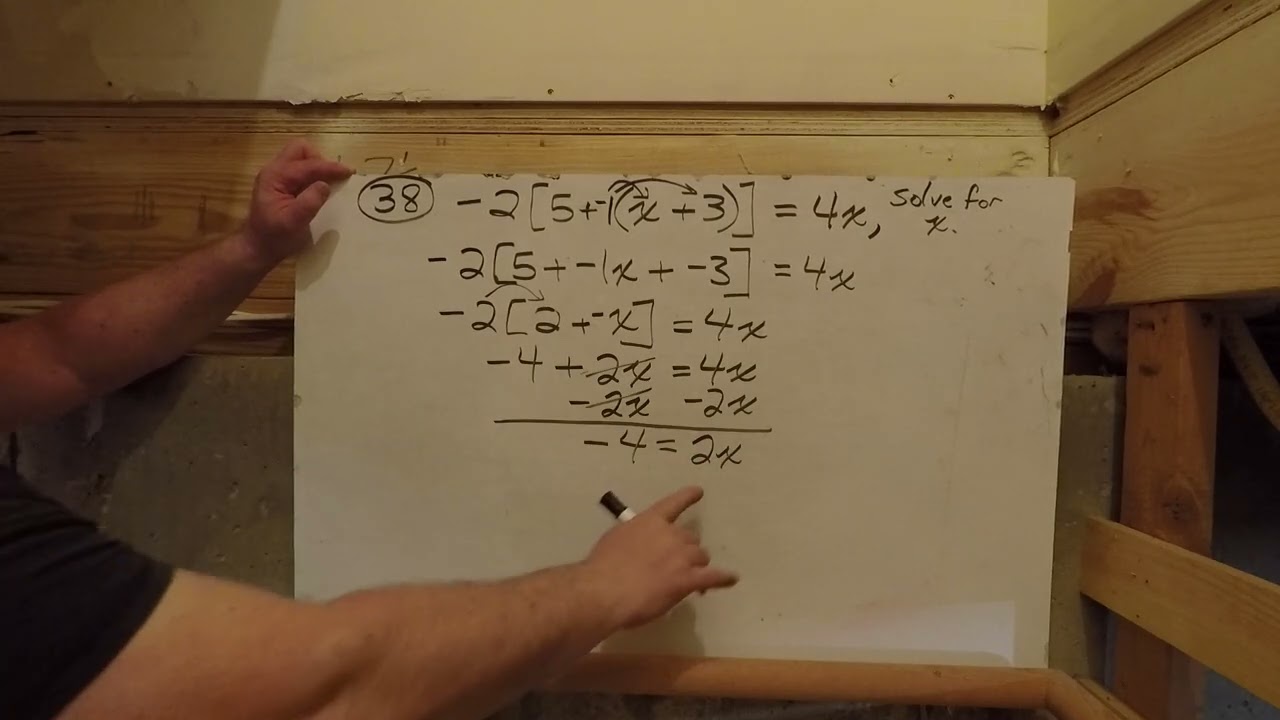 38 -2[5+-1(x+3)] = 4x, solve for x.
-2[5+-1x+-3] = 4x
-2[2+-x] = 4x
-4+2x = 4x
-2x -2x
-4 = 2x